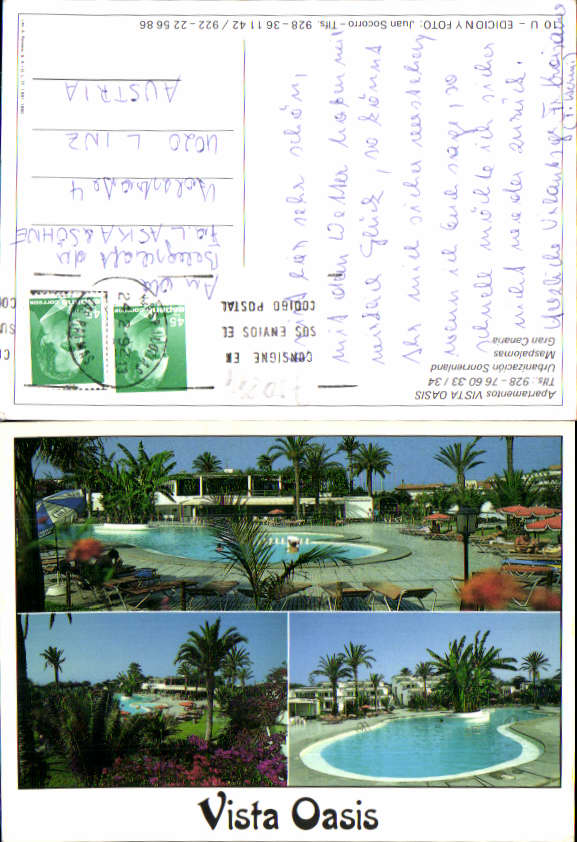 Apartamentos VISTA OASIS
Tlfs: 928 - 76 60 33 / 34
Urbanización Sonnenland
Maspalomas
Gran Canaria
CONSIGNE EN
SUS ENVIOS EL
CODIGO POSTAL
45
correos
An die
Belegschaft der
Fa. LASKA & SÖHNE
4
4020 LINZ
AUSTRIA
ist sehr schön,
mit dem Wetter haben wir
Glück, so könnt
Ihr mich sicher verstehen
wenn ich Euch sage, so
schnell möchte ich sicher
nicht wieder zurück.
Urlaubsgrüße
10 U - EDICION Y FOTO: Juan Socorro - Tlfs. 928 - 36 11 42 / 922 - 22 56 86
Vista Oasis